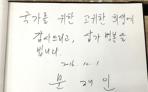 국가를 위한 고귀한 희생에
감사드리고, 삼가 명복을
빕니다.
2016. 10. 1
문 재 인